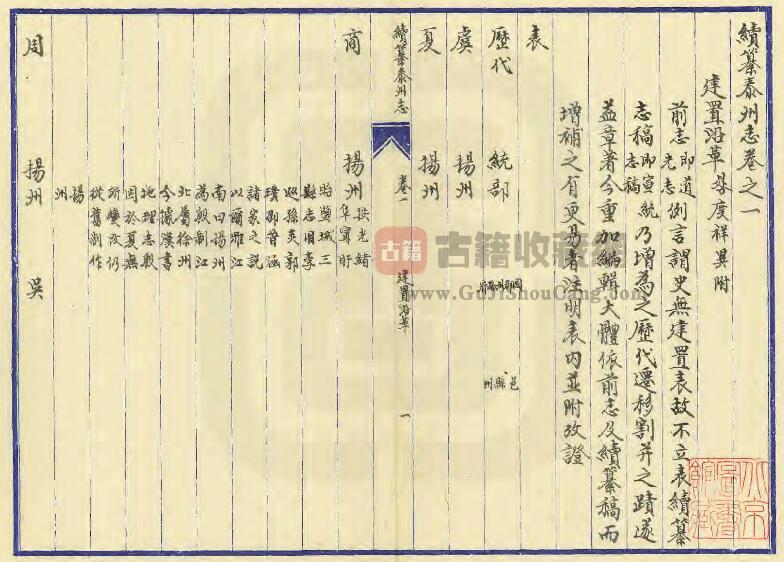 續纂泰州志卷之一
建置沿革 晷度祥異附
前志即道光志例言謂史無建置表故不立表續纂
志稿即宣統志稿乃增為之歷代遷移割并之蹟遂
益章著今重加編輯大體依前志及續纂稿而
增補之有更易者注明表內並附攷證
表
歷代 統部 國郡州路府 邑縣州
虞 揚州
夏 揚州
續纂泰州志 卷一 建置沿革 一
商 揚州 按光緒
阜寧盱
眙 城三
縣志旧李
巡孫炎郭
璞邵晋涵
諸家之説
以爾雅江
南曰揚州
為殷制江
北屬徐州
今據漢書
地理志殷
因於夏無
所變改仍
從舊制作
揚
州
周 揚州 吳
古籍 古籍收藏網
www.GuJiShouCang.com